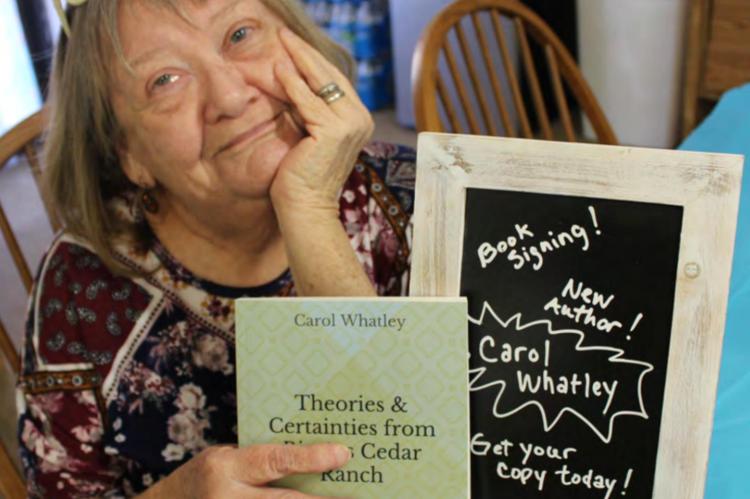 Carol Whatley
Theories &
Certainties from
Cedar
Ranch
Book
Signing!
New
Author!
Carol
Whatley
Get your
copy today!